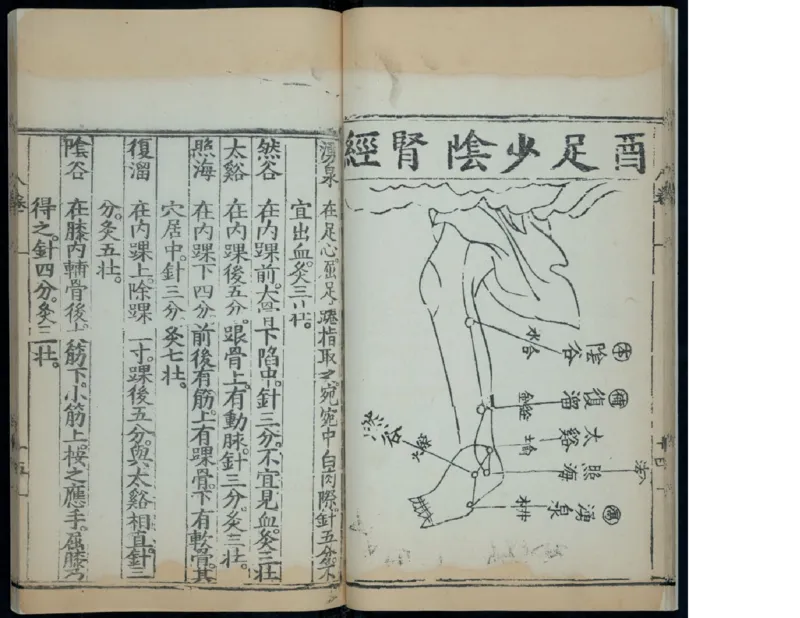 酉足少陰腎經
陰谷
水合
復溜
太谿
照海
湧泉
木井
湧泉 在足心屈足踡指取之宛宛中白肉際針五分不
宜出血灸三壯。
然谷 在內踝前大骨下陷中。針三分。不宜見血。灸三壯
太谿 在內踝後五分。跟骨上。有動脉。針三分。灸三壯。
照海 在內踝下四分。前後有筋。上有踝骨。下有軟骨。其
穴居中。針三分。灸七壯。
復溜 在內踝上。除踝一寸。踝後五分。與太谿相直。針三
分。灸五壯。
陰谷 在膝內輔骨後。大筋下。小筋上。按之應手。屈膝乃
得之。針四分。灸三壯。